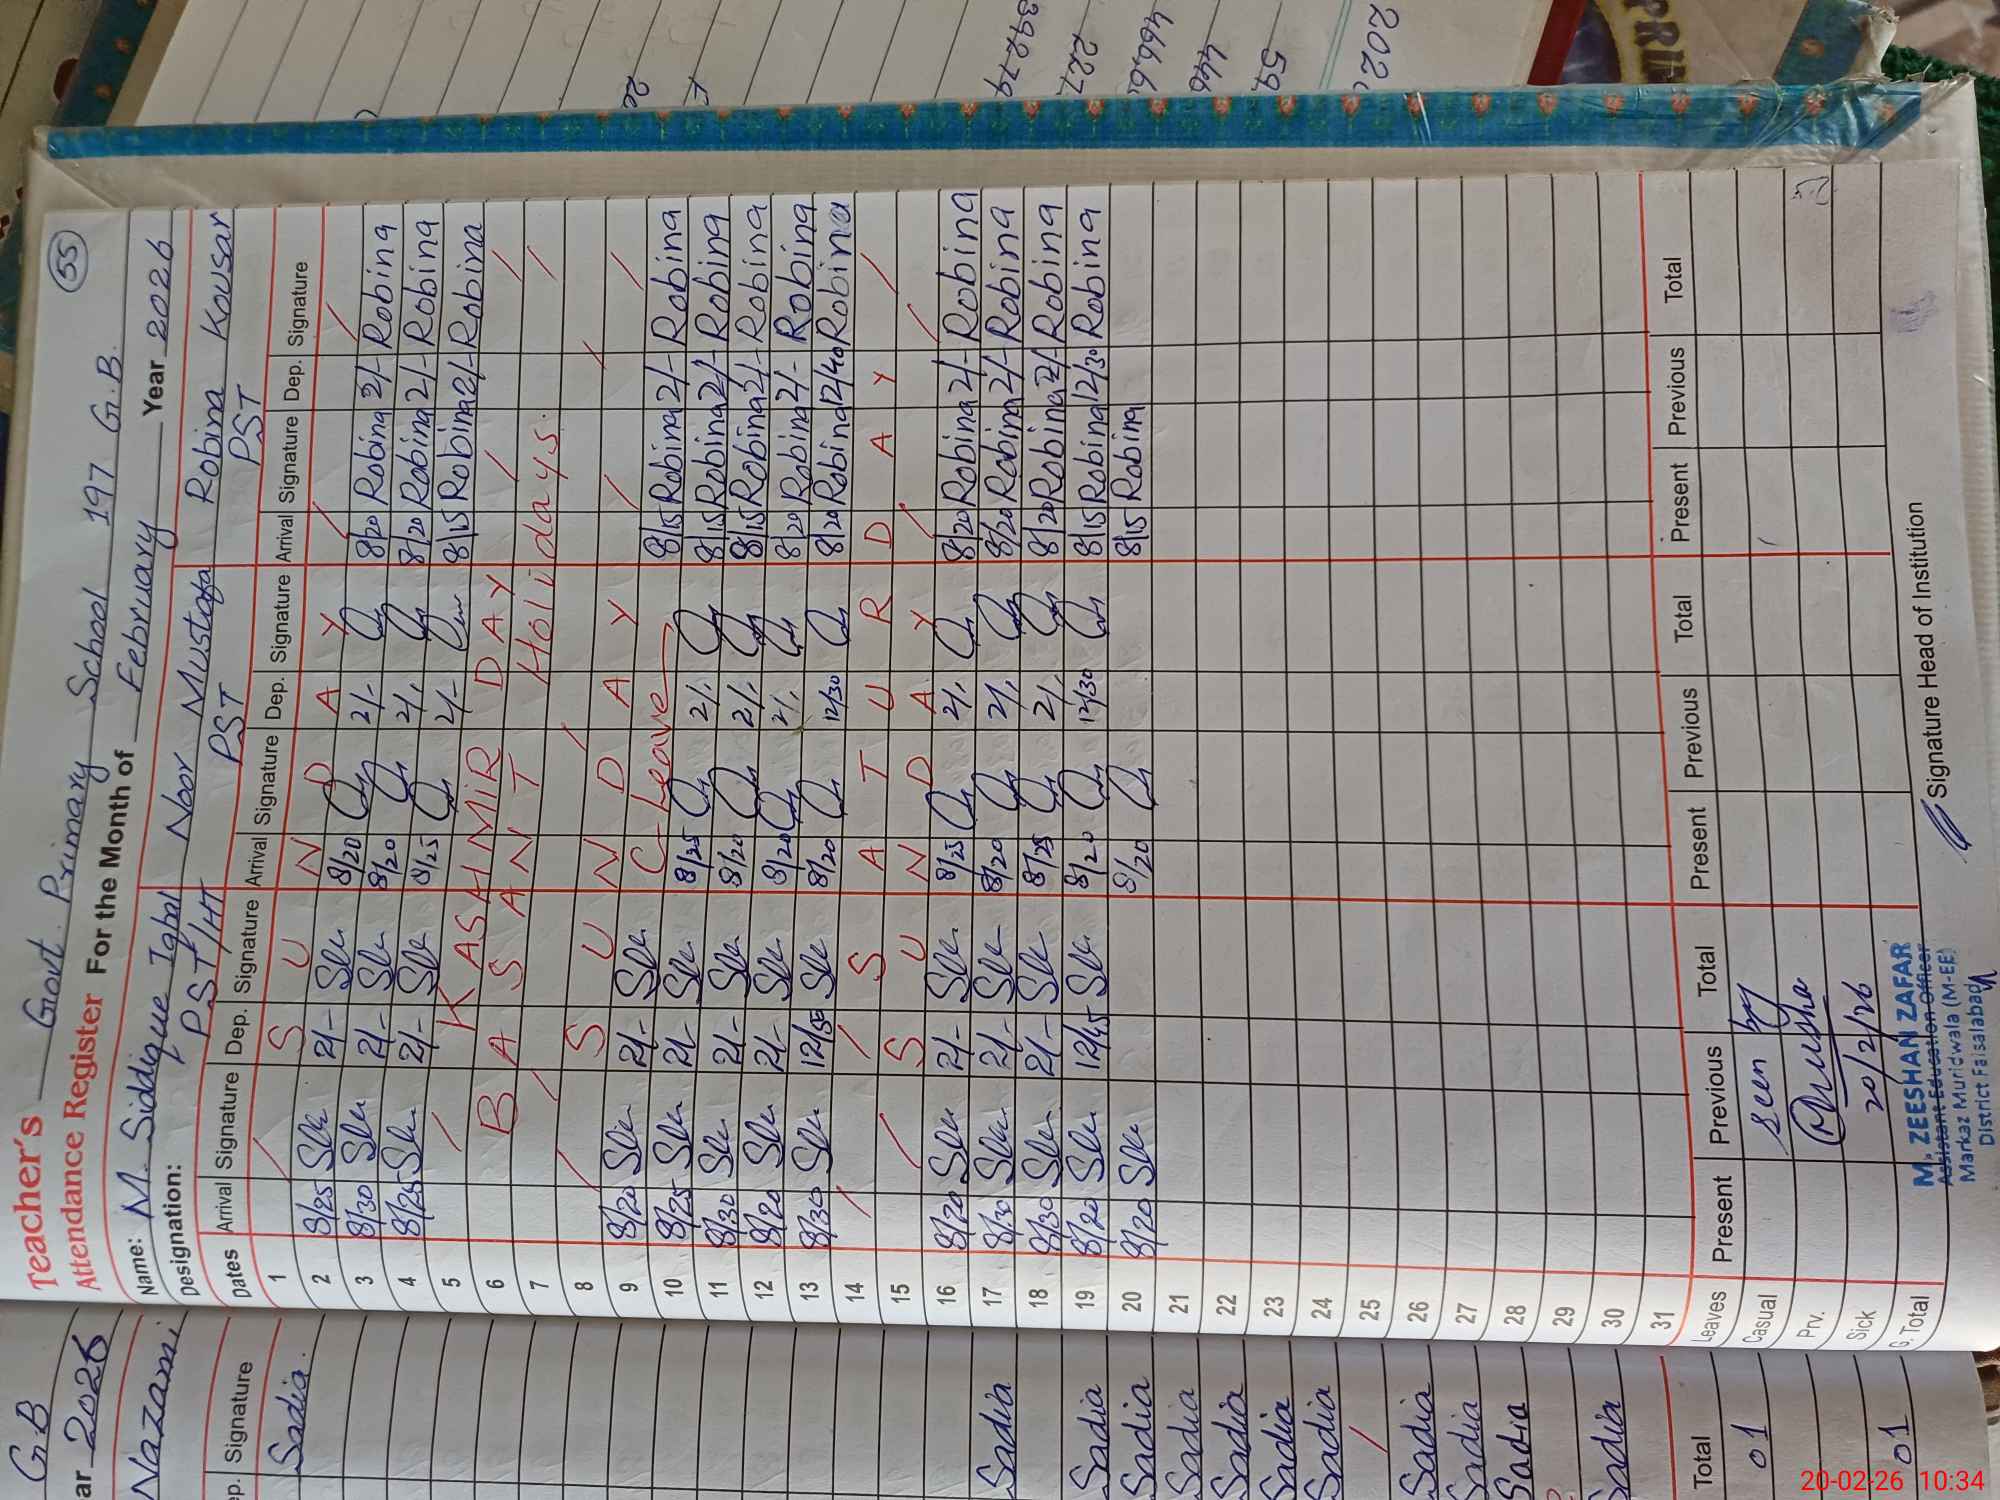 Teacher's Govt. Primary School 197 G.B. 55
Attendance Register For the Month of February Year 2026
Name: M. Siddique Iqbal Noor Mustafa Robina Kousar
Designation: PST/HT PST PST
Dates Arrival Signature Dep. Signature Arrival Signature Dep. Signature Arrival Signature Dep. Signature
1 S U N D A Y
2 8/25 2/- 8/20 2/- 8/20 Robina 2/- Robina
3 8/30 2/- 8/20 2/- 8/20 Robina 2/- Robina
4 8/25 2/- 8/25 2/- 8/15 Robina 2/- Robina
5 KASHMIR DAY
6 BASANT Holidays.
7
8 S U N D A Y
9 8/20 2/- C-Leave 8/15 Robina 2/- Robina
10 8/25 2/- 8/25 2/- 8/15 Robina 2/- Robina
11 8/30 2/- 8/20 2/- 8/15 Robina 2/- Robina
12 8/20 2/- 8/20 2/- 8/20 Robina 2/- Robina
13 8/30 12/55 8/20 12/30 8/20 Robina 12/40 Robina
14 S A T U R D A Y
15 S U N D A Y
16 8/20 2/- 8/25 2/- 8/20 Robina 2/- Robina
17 8/30 2/- 8/20 2/- 8/20 Robina 2/- Robina
18 8/30 2/- 8/25 2/- 8/20 Robina 2/- Robina
19 8/20 12/45 8/20 12/30 8/15 Robina 12/30 Robina
20 8/20 8/20 8/15 Robina
21
22
23
24
25
26
27
28
29
30
31
Leaves Present Previous Total Present Previous Total Present Previous Total
Casual seen by
Prv.
Sick 20/2/26
G. Total
Signature Head of Institution
M. ZEESHAN ZAFAR
Assistant Education Officer
Markaz Muridwala (M-EE)
District Faisalabad
G.B
ar 2026
Nazami
ep. Signature
Sadia
Sadia
Sadia
Sadia
Sadia
Sadia
Sadia
Sadia
Sadia
Sadia
Sadia
Sadia
Total
01
01
39279
227
466
446
59
202
PRI
20-02-26 10:34